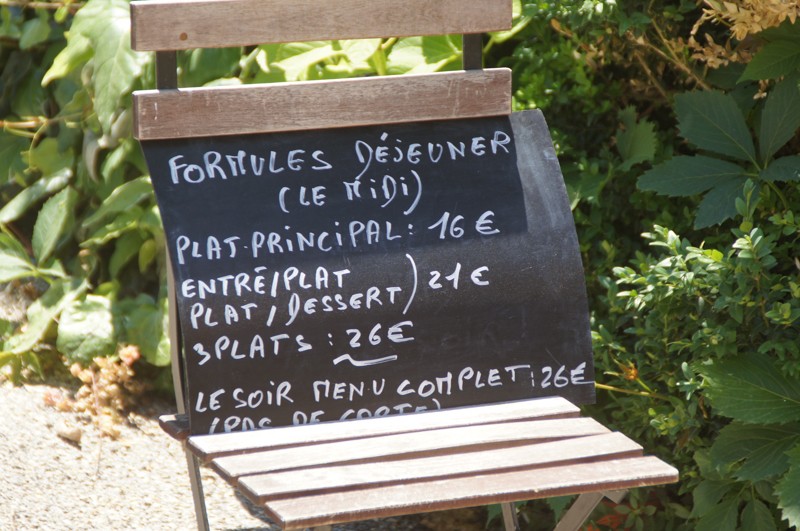 FORMULES DÉJEUNER
(LE MiDi)
PLAT.PRINCIPAL: 16 €
ENTRÉ/PLAT
PLAT/DESSERT) 21 €
3 PLATS : 26€
LE SOIR MENU COMPLET: 26€
(PAS DE CARTE)